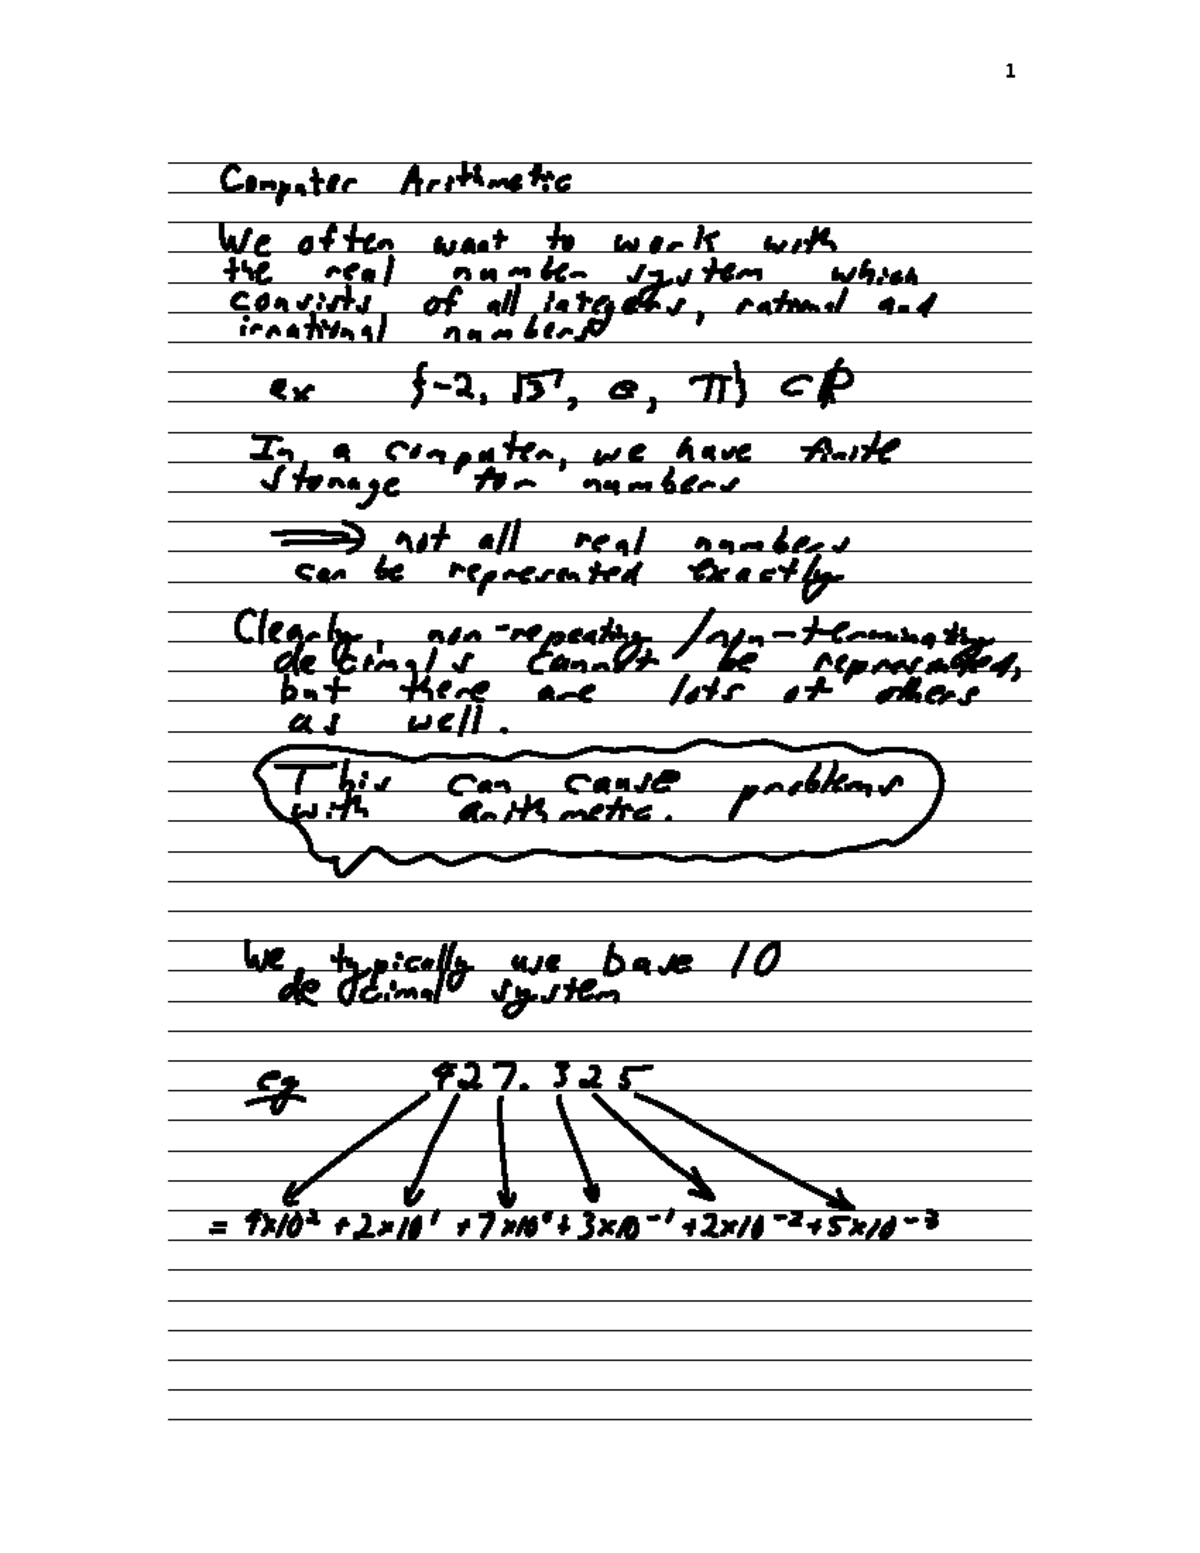 1
Computer Arithmetic
We often want to work with
the real number system which
consists of all integers, rational and
irrational numbers
ex {-2, √5, e, π} ⊂ ℝ
In a computer, we have finite
storage for numbers
⟹ not all real numbers
can be represented exactly
Clearly, non-repeating /non-terminating
decimals cannot be represented,
but there are lots of others
as well.
This can cause problems
with arithmetic.
We typically use base 10
decimal system
eg 427.325
= 4x10² + 2x10¹ + 7x10⁰ + 3x10⁻¹ + 2x10⁻² + 5x10⁻³